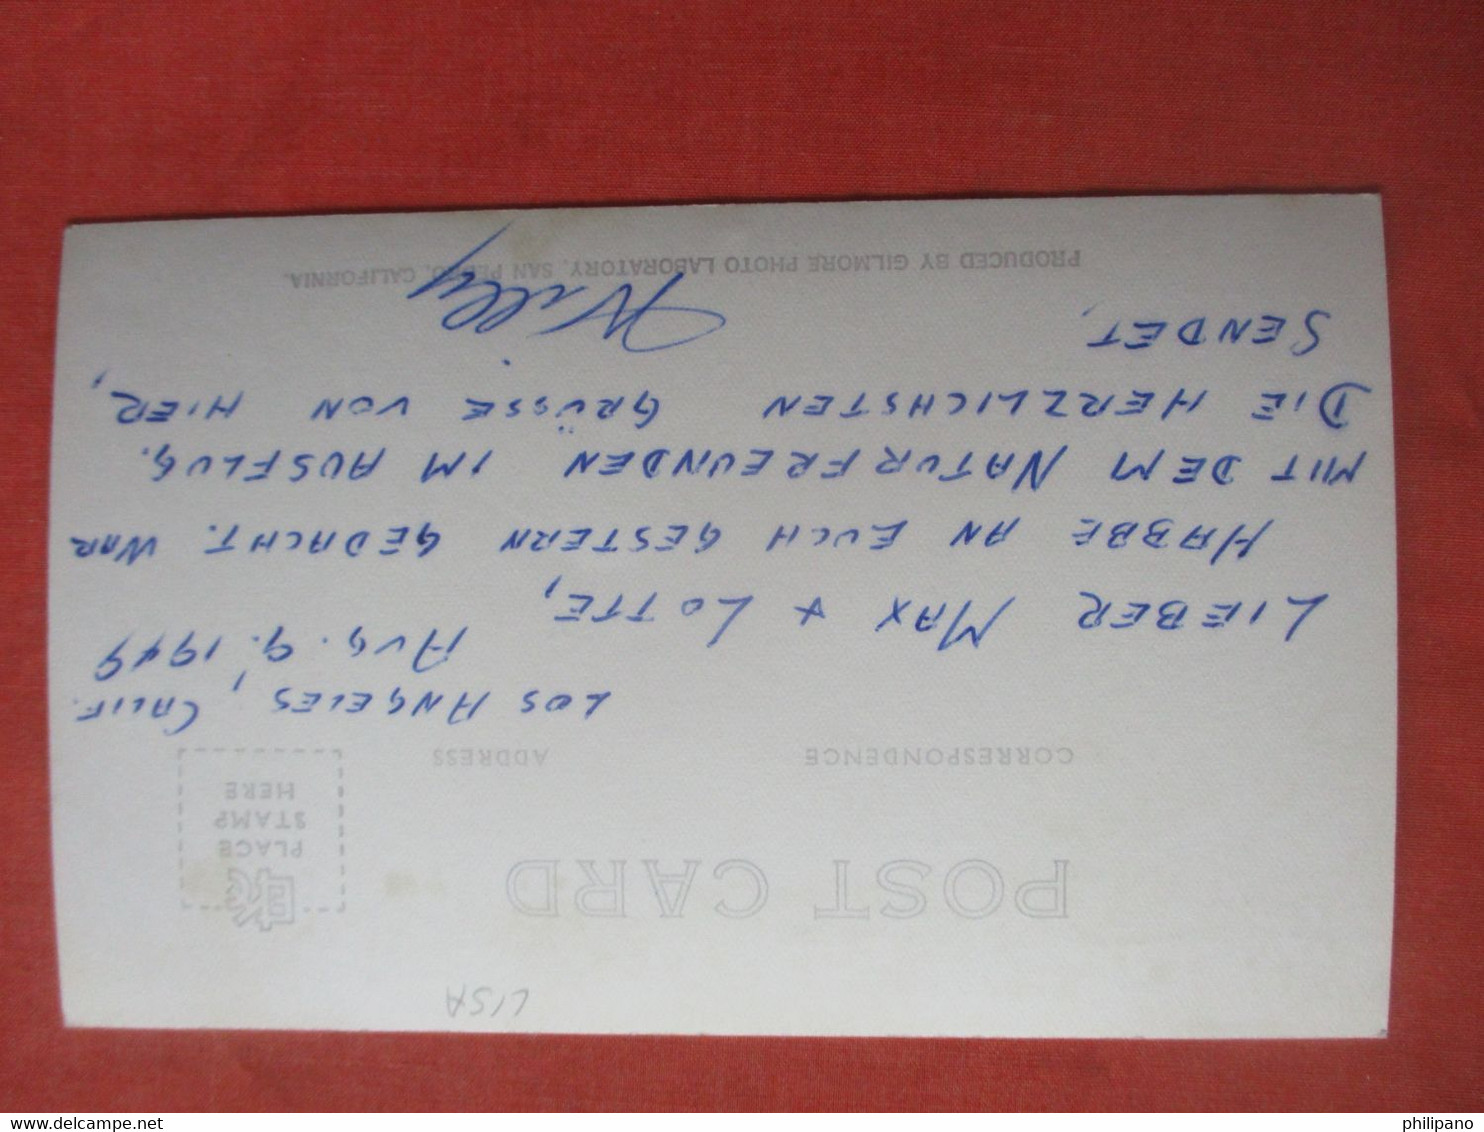 LISA
POST CARD
PLACE
STAMP
HERE
CORRESPONDENCE
ADDRESS
LOS ANGELES, CALIF.
AUG. 9. 1949
LIEBER MAX + LOTTE,
HABBE AN EUCH GESTERN GEDACHT. WAR
MIT DEM NATURFREUNDEN IM AUSFLUG.
DIE HERZLICHSTEN GRÜSSE VON HIER,
SENDET,
Willy
PRODUCED BY GILMORE PHOTO LABORATORY, SAN PEDRO, CALIFORNIA.
delcampe.net
philipano